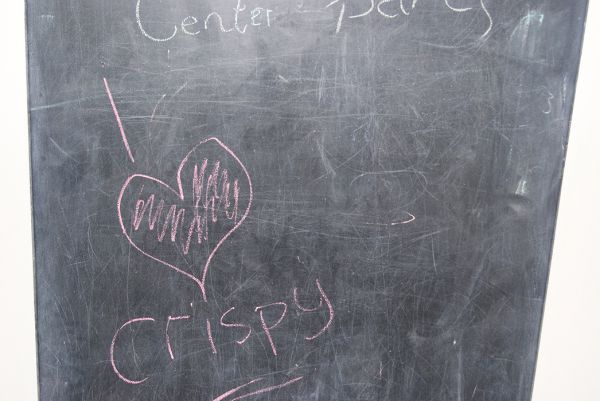 Center party
I
crispy